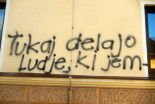 Tukaj delajo
ludje, ki jem-